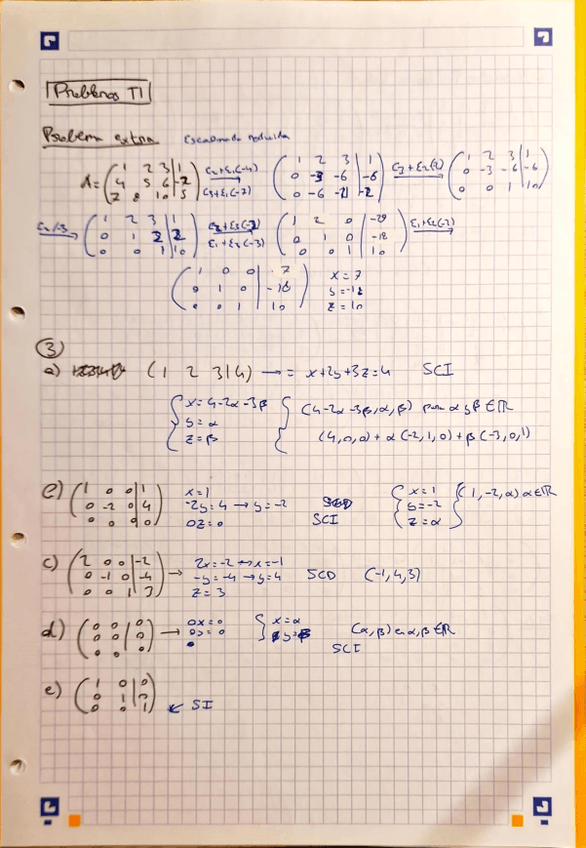 Problemas T1
Problema extra Escalonada reducida
A = ( 1 2 3 | 1 ; 4 5 6 | -2 ; 7 8 10 | 5 ) E2+E1(-4) E3+E1(-7) → ( 1 2 3 | 1 ; 0 -3 -6 | -6 ; 0 -6 -11 | -2 ) E3+E2(2) → ( 1 2 3 | 1 ; 0 -3 -6 | -6 ; 0 0 1 | 10 )
E2/-3 → ( 1 2 3 | 1 ; 0 1 2 | 2 ; 0 0 1 | 10 ) E2+E3(-2) E1+E3(-3) → ( 1 2 0 | -29 ; 0 1 0 | -18 ; 0 0 1 | 10 ) E1+E2(-2) →
( 1 0 0 | 7 ; 0 1 0 | -18 ; 0 0 1 | 10 ) x=7 y=-18 z=10
3
a) (1 2 3|4) → = x+2y+3z=4 SCI
{ x=4-2α-3β ; y=α ; z=β { (4-2α-3β, α, β) para α y β ∈ ℝ
(4,0,0) + α (-2,1,0) + β (-3,0,1)
e) ( 1 0 0 | 1 ; 0 -2 0 | 4 ; 0 0 0 | 0 ) x=1 ; -2y=4 → y=-2 ; 0z=0 SCI { x=1 ; y=-2 ; z=α } (1,-2,α) α∈ℝ
c) ( 2 0 0 | -2 ; 0 -1 0 | -4 ; 0 0 1 | 3 ) → 2x=-2 → x=-1 ; -y=-4 → y=4 ; z=3 SCD (-1,4,3)
d) ( 0 0 | 0 ; 0 0 | 0 ; 0 0 | 0 ) → 0x=0 ; 0y=0 { x=α ; y=β (α,β) con α,β ∈ℝ
SCI
e) ( 1 0 | 0 ; 0 1 | 0 ; 0 0 | 1 ) ← SI